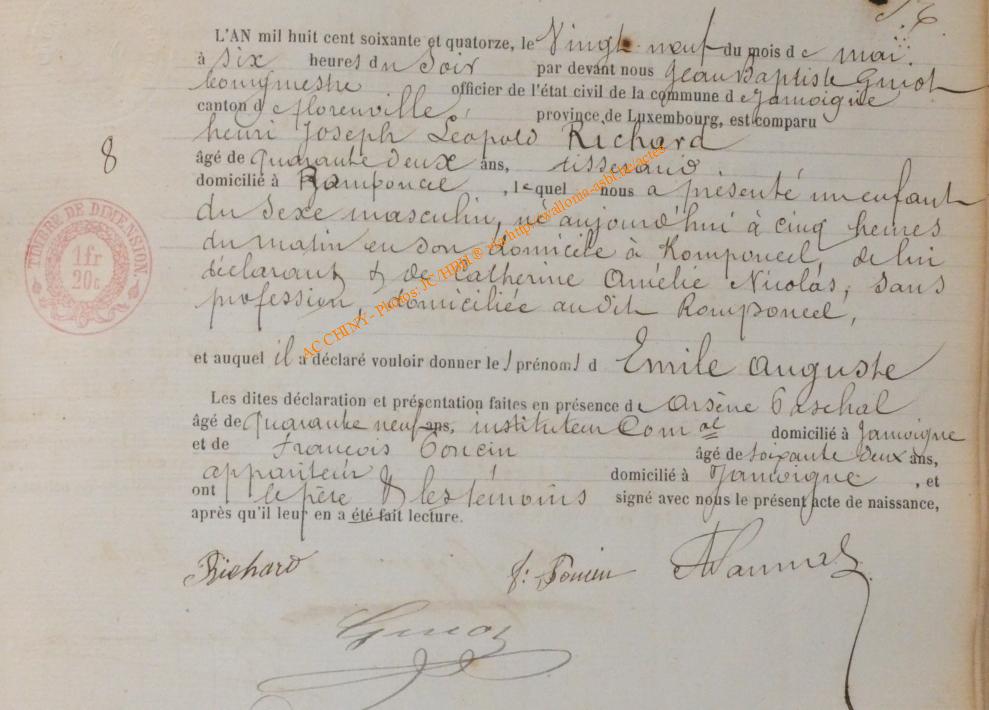 L'AN mil huit cent soixante et quatorze, le Vingt neuf du mois de mai
à six heures du soir par devant nous Jean Baptiste Guiot
bourgmestre officier de l'état civil de la commune de Jamoigne
canton de florenville, province de Luxembourg, est comparu
henri Joseph Léopold Richard
8
âgé de quarante deux ans, tisserand
domicilié à Romponcel, lequel nous a présenté un enfant
du sexe masculin, né aujourd'hui à cinq heures
du matin en son domicile à Romponcel, de lui
déclarant & de Catherine Amélie Nicolas, sans
profession, domiciliée audit Romponcel,
TIMBRE DE DIMENSION.
1fr
20c.
et auquel il a déclaré vouloir donner les prénoms d Emile Auguste
Les dites déclaration et présentation faites en présence de Arsène
âgé de Quarante neuf ans, instituteur Com.al domicilié à Jamoigne
et de François Poncin âgé de soixante deux ans,
appariteur domicilié à Jamoigne, et
ont le père & les témoins signé avec nous le présent acte de naissance,
après qu'il leur en a été fait lecture.
Richard f: Poncin
Guiot
AC CHINY - Photos: JC/HDH ® via http://wallonia-asbl.be/actes